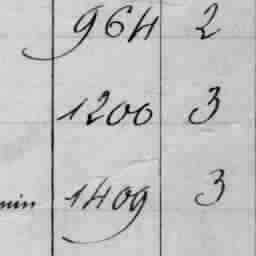 964 2
1200 3
min 1409 3